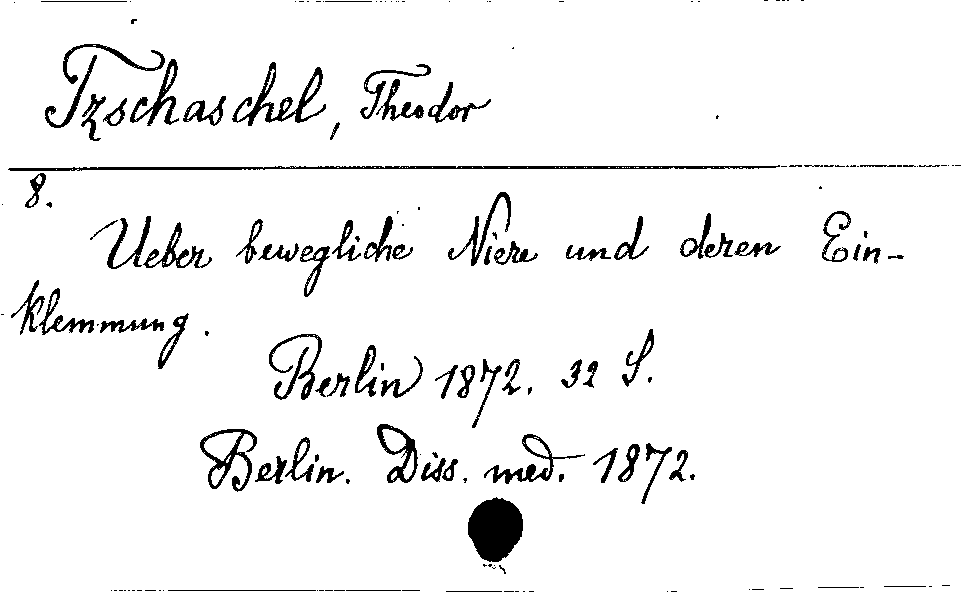 Tzschaschel, Theodor
8.
Ueber bewegliche Niere und deren Ein-
klemmung.
Berlin 1872. 32 S.
Berlin. Diss. med. 1872.